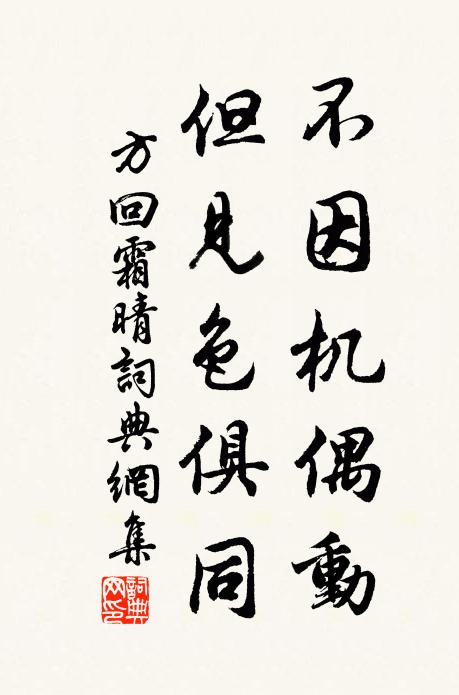 不因机偶動
但見色俱同
方回霜晴詞典網集
詞典网印